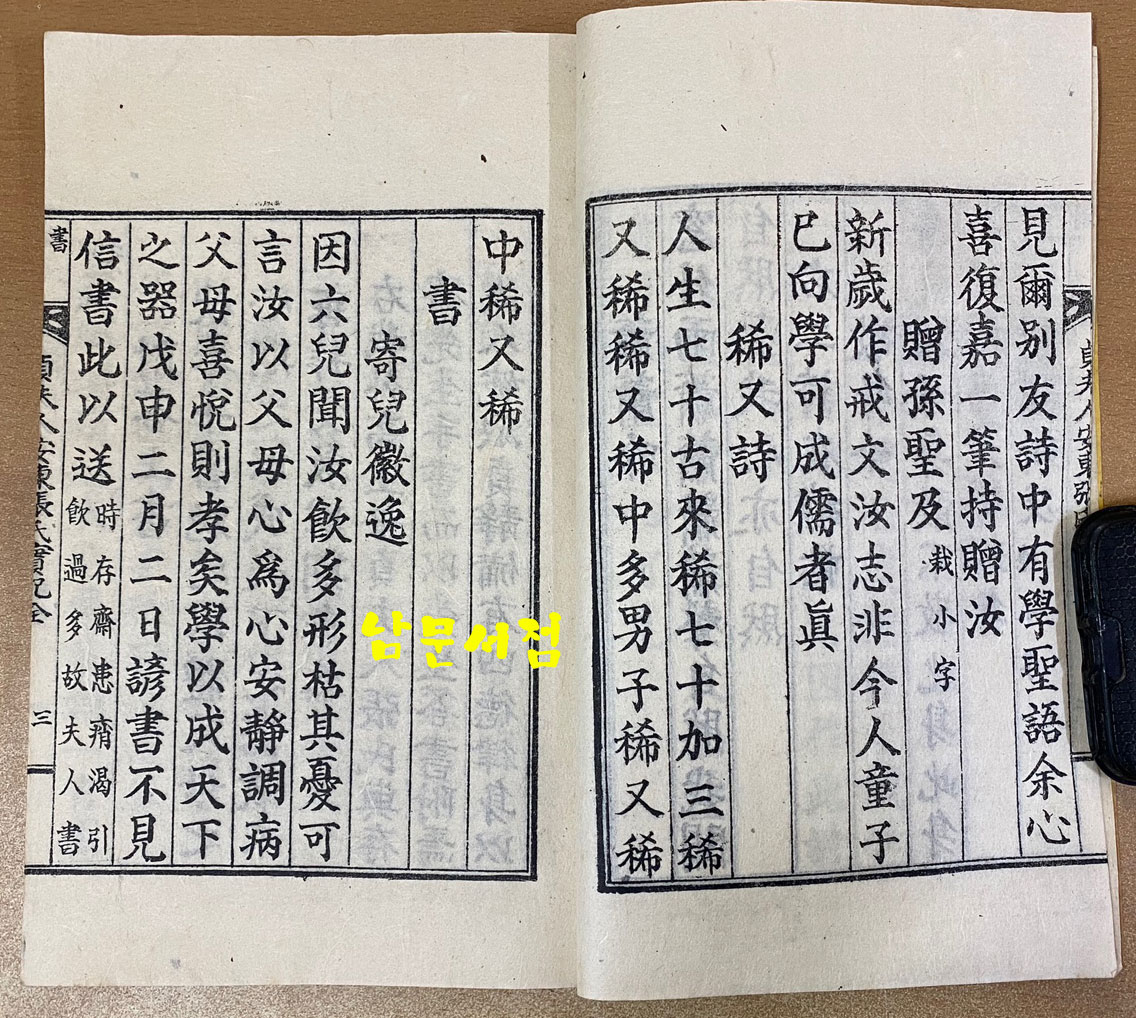 見爾別友詩中有學聖語余心
喜復嘉一筆持贈汝
贈孫聖及 栽小字
新歲作戒文汝志非今人童子
已向學可成儒者眞
稀又詩
人生七十古來稀七十加三稀
又稀稀又稀中多男子稀又稀
中稀又稀
書
寄兒徽逸
因六兒聞汝飮多形枯其憂可
言汝以父母心爲心安靜調病
父母喜悅則孝矣學以成天下
之器戊申二月二日諺書不見
信書此以送 時存齋患痟渴引
飮過多故夫人書
書
貞夫人安東張氏實記全
三
남문서점